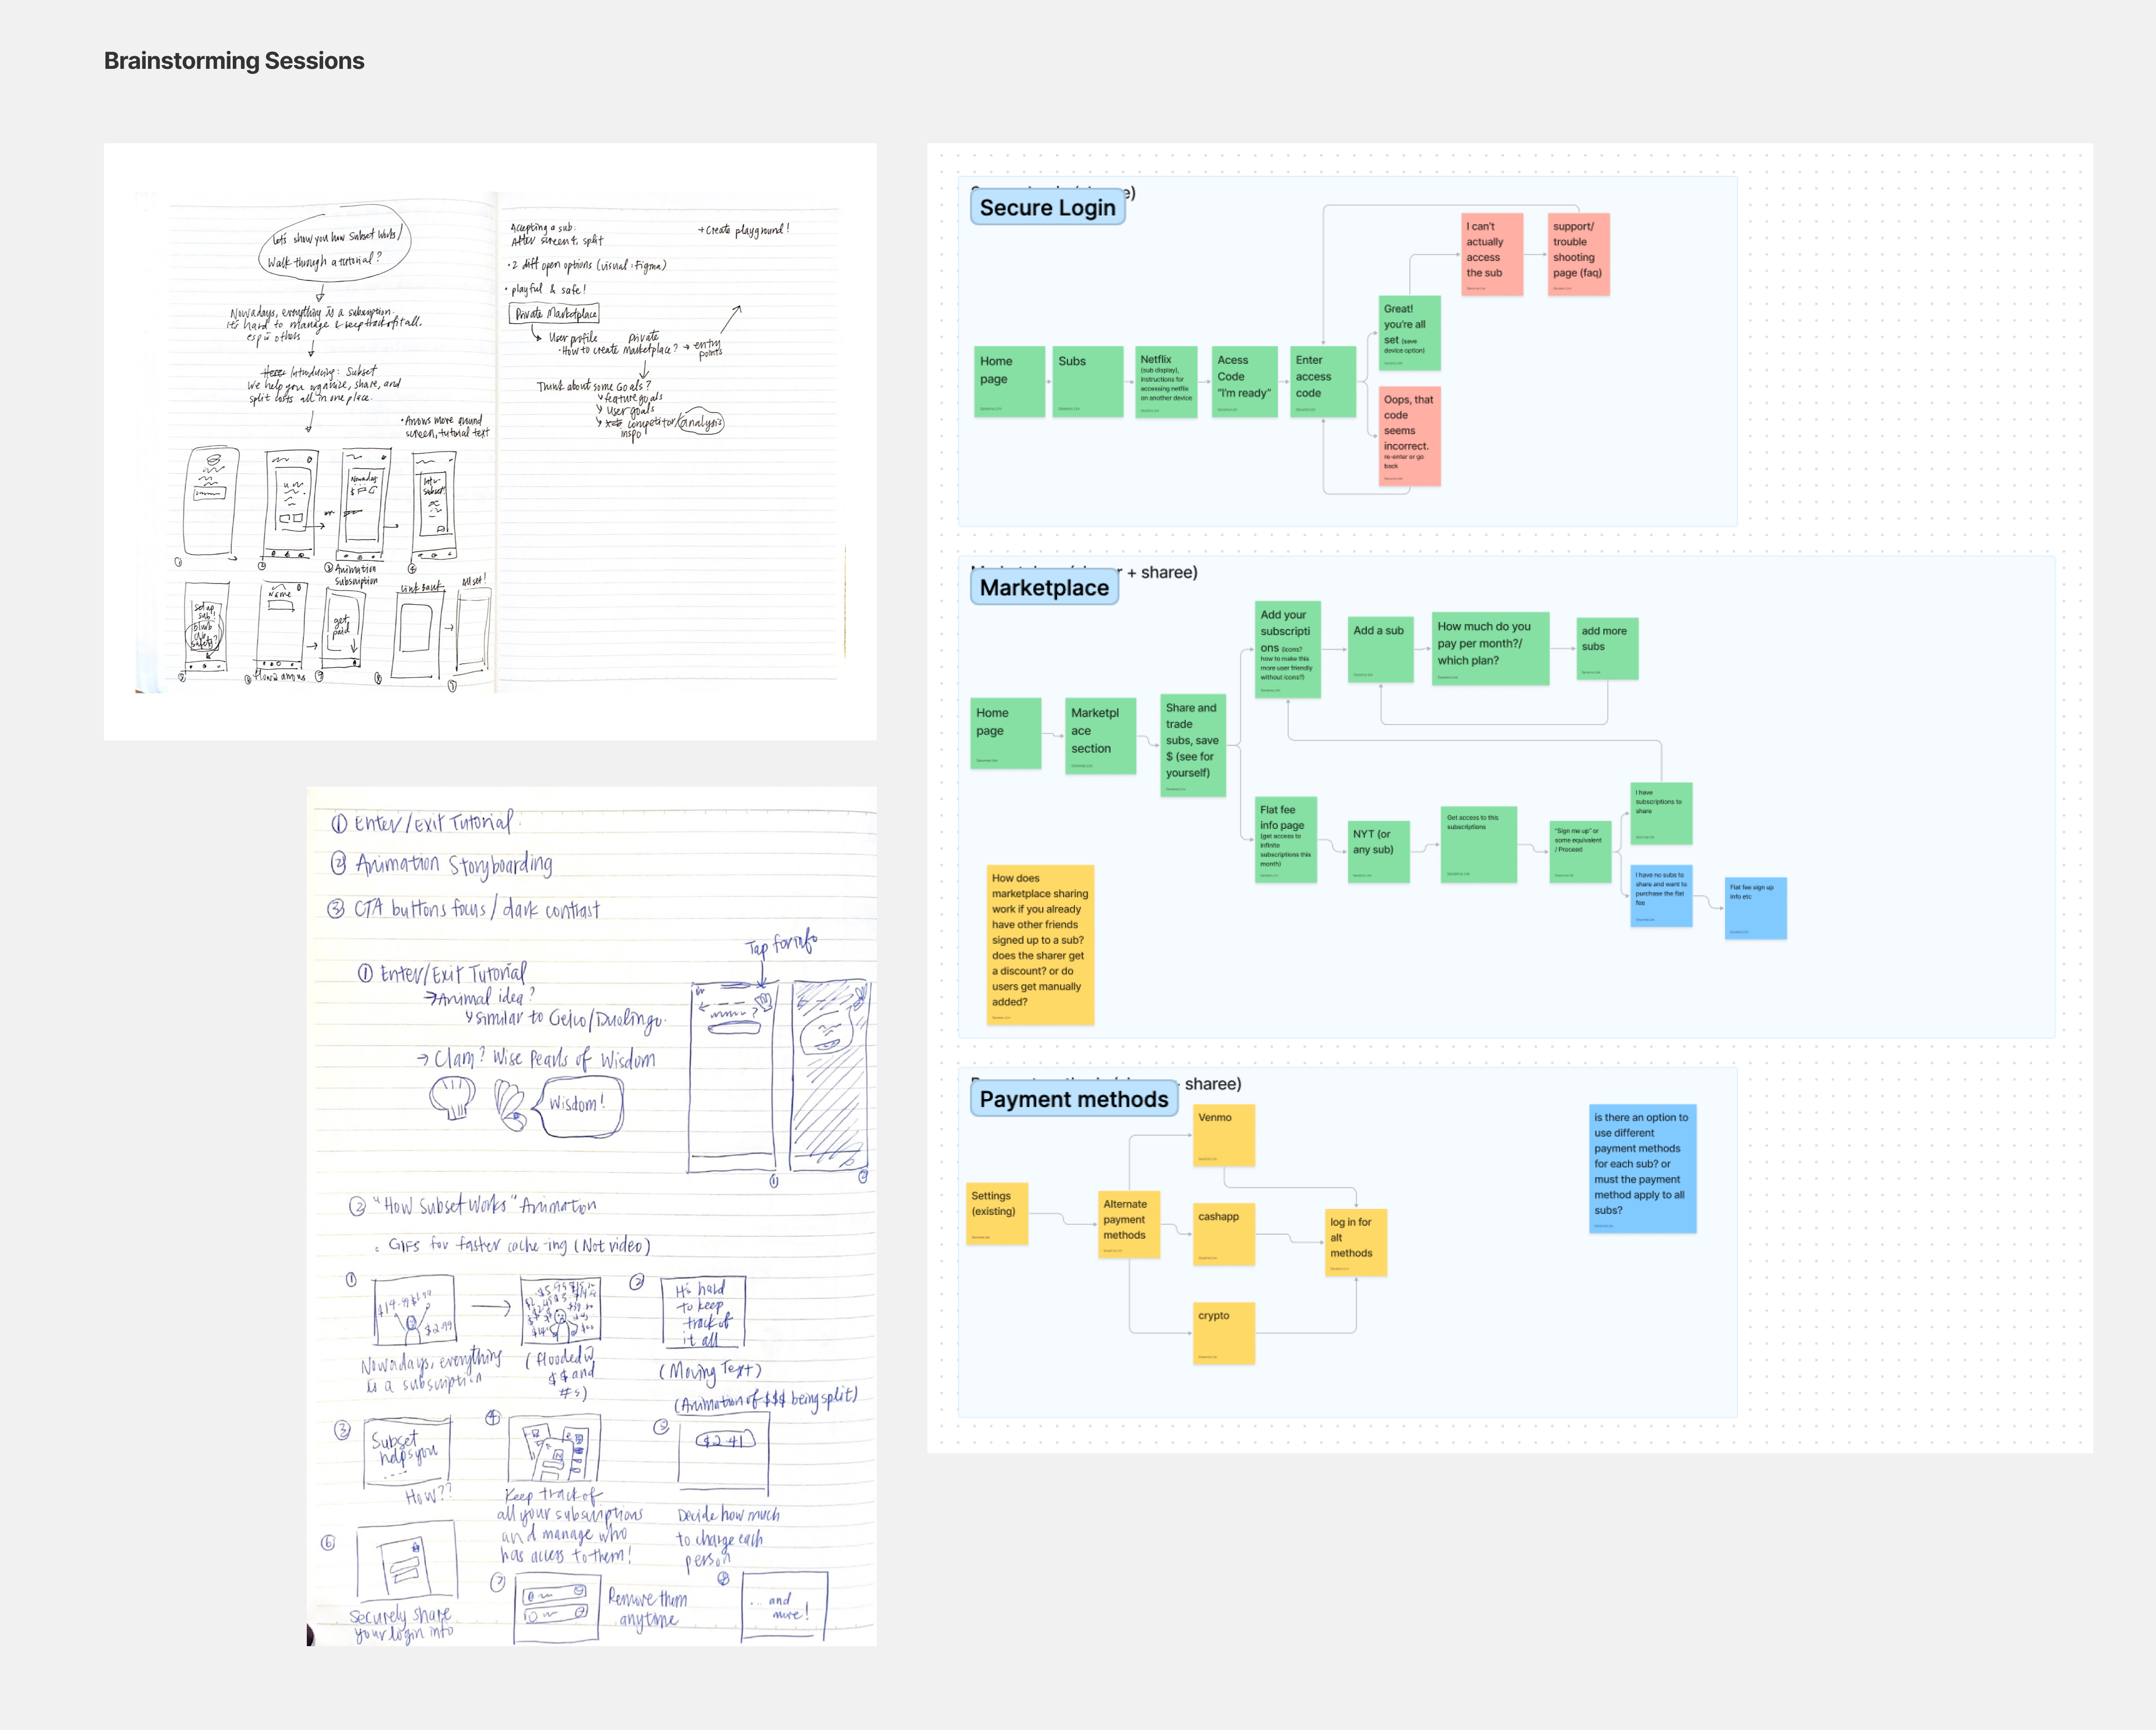 Brainstorming Sessions
Let's show you how Subset Works/
Walk through a tutorial?
Nowadays, everything is a subscription.
it's hard to manage & keep track of it all.
esp w others
Introducing: Subset
We help you organize, share, and
split costs all in one place.
• Arrows more around
screen, tutorial text
Nowadays
①
②
③ Animation
④
Subscription
set up
sub
Name
get
paid
Link Bank
All set!
Accepting a sub:
After screen 4, split
→ Create playground!
• 2 diff open options (visual: Figma)
• playful & safe!
Private Marketplace
User profile
Private
• How to create Marketplace? → entry
points
Think about some Goals?
feature goals
User goals
competitor/analysis
inspo
① Enter/Exit Tutorial
② Animation Storyboarding
③ CTA buttons focus/dark contrast
Tap for info
① Enter/Exit Tutorial
→ Animal idea?
similar to Geico/Duolingo.
→ Clam? Wise Pearls of Wisdom
Wisdom!
①
②
② "How Subset Works" Animation
• GIFs for faster cache-ing (Not video)
①
$2.99
Nowadays, everything
is a subscription
(flooded w
$$ and
#s)
②
It's hard
to keep
track of
it all
(Moving Text)
(Animation of $$$ being split)
③
Subset
helps you
How??
④
Keep track of
all your subscriptions
and manage who
has access to them!
⑤
$2.41
Decide how much
to charge each
person
⑥
Securely share
your login info
⑦
Remove them
anytime
⑧
... and
more!
Secure Login
Home
page
Subs
Netflix
(sub display),
instructions for
accessing netflix
on another device
Acess
Code
"I'm ready"
Enter
access
code
Great!
you're all
set (save
device option)
Oops, that
code
seems
incorrect.
re-enter or go
back
I can't
actually
access
the sub
support/
trouble
shooting
page (faq)
r + sharee)
Marketplace
Home
page
Marketpl
ace
section
Share and
trade
subs, save
$ (see for
yourself)
Add your
subscripti
ons (icons?
how to make this
more user friendly
without icons?)
Add a sub
How much do you
pay per month?/
which plan?
add more
subs
Flat fee
info page
(get access to
infinite
subscriptions this
month)
NYT (or
any sub)
Get access to this
subscriptions
"Sign me up" or
some equivalent
/ Proceed
I have
subscriptions to
share
I have no subs to
share and want to
purchase the flat
fee
Flat fee sign up
info etc
How does
marketplace sharing
work if you already
have other friends
signed up to a sub?
does the sharer get
a discount? or do
users get manually
added?
sharee)
Payment methods
Settings
(existing)
Alternate
payment
methods
Venmo
cashapp
crypto
log in for
alt
methods
is there an option to
use different
payment methods
for each sub? or
must the payment
method apply to all
subs?